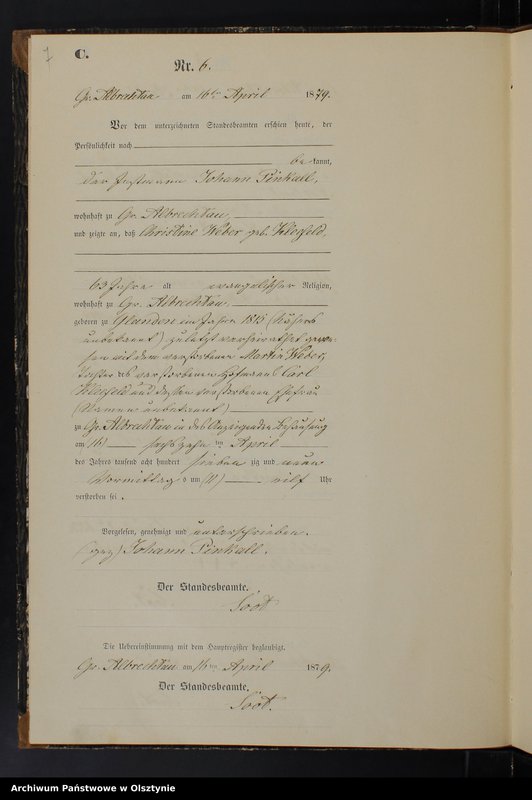 7
C.
Nr. 6.
Gr. Albrechtau am 16ten April 1879.
Vor dem unterzeichneten Standesbeamten erschien heute, der
Persönlichkeit nach
bekannt,
der Instmann Johann Pinkall,
wohnhaft zu Gr. Albrechtau,
und zeigte an, daß Christine Weber geb. Kleefeld,
63 Jahre alt evangelischer Religion,
wohnhaft zu Gr. Albrechtau
geboren zu im Jahre 1815 (Näheres
unbekannt) zuletzt verheirathet gewe-
sen mit dem verstorbenen Martin Weber,
Tochter des verstorbenen Carl
Kleefeld und dessen verstorbenen Ehefrau
(Namen unbekannt)
zu Gr. Albrechtau in des Anzeigenden Behausung
am (16) sechszehnten April
des Jahres tausend acht hundert siebenzig und neun
Vormittags um (11) eilf Uhr
verstorben sei.
Vorgelesen, genehmigt und unterschrieben.
(gez) Johann Pinkall.
Der Standesbeamte.
Die Uebereinstimmung mit dem Hauptregister beglaubigt.
Gr. Albrechtau am 16ten April 1879.
Der Standesbeamte.
Archiwum Państwowe w Olsztynie